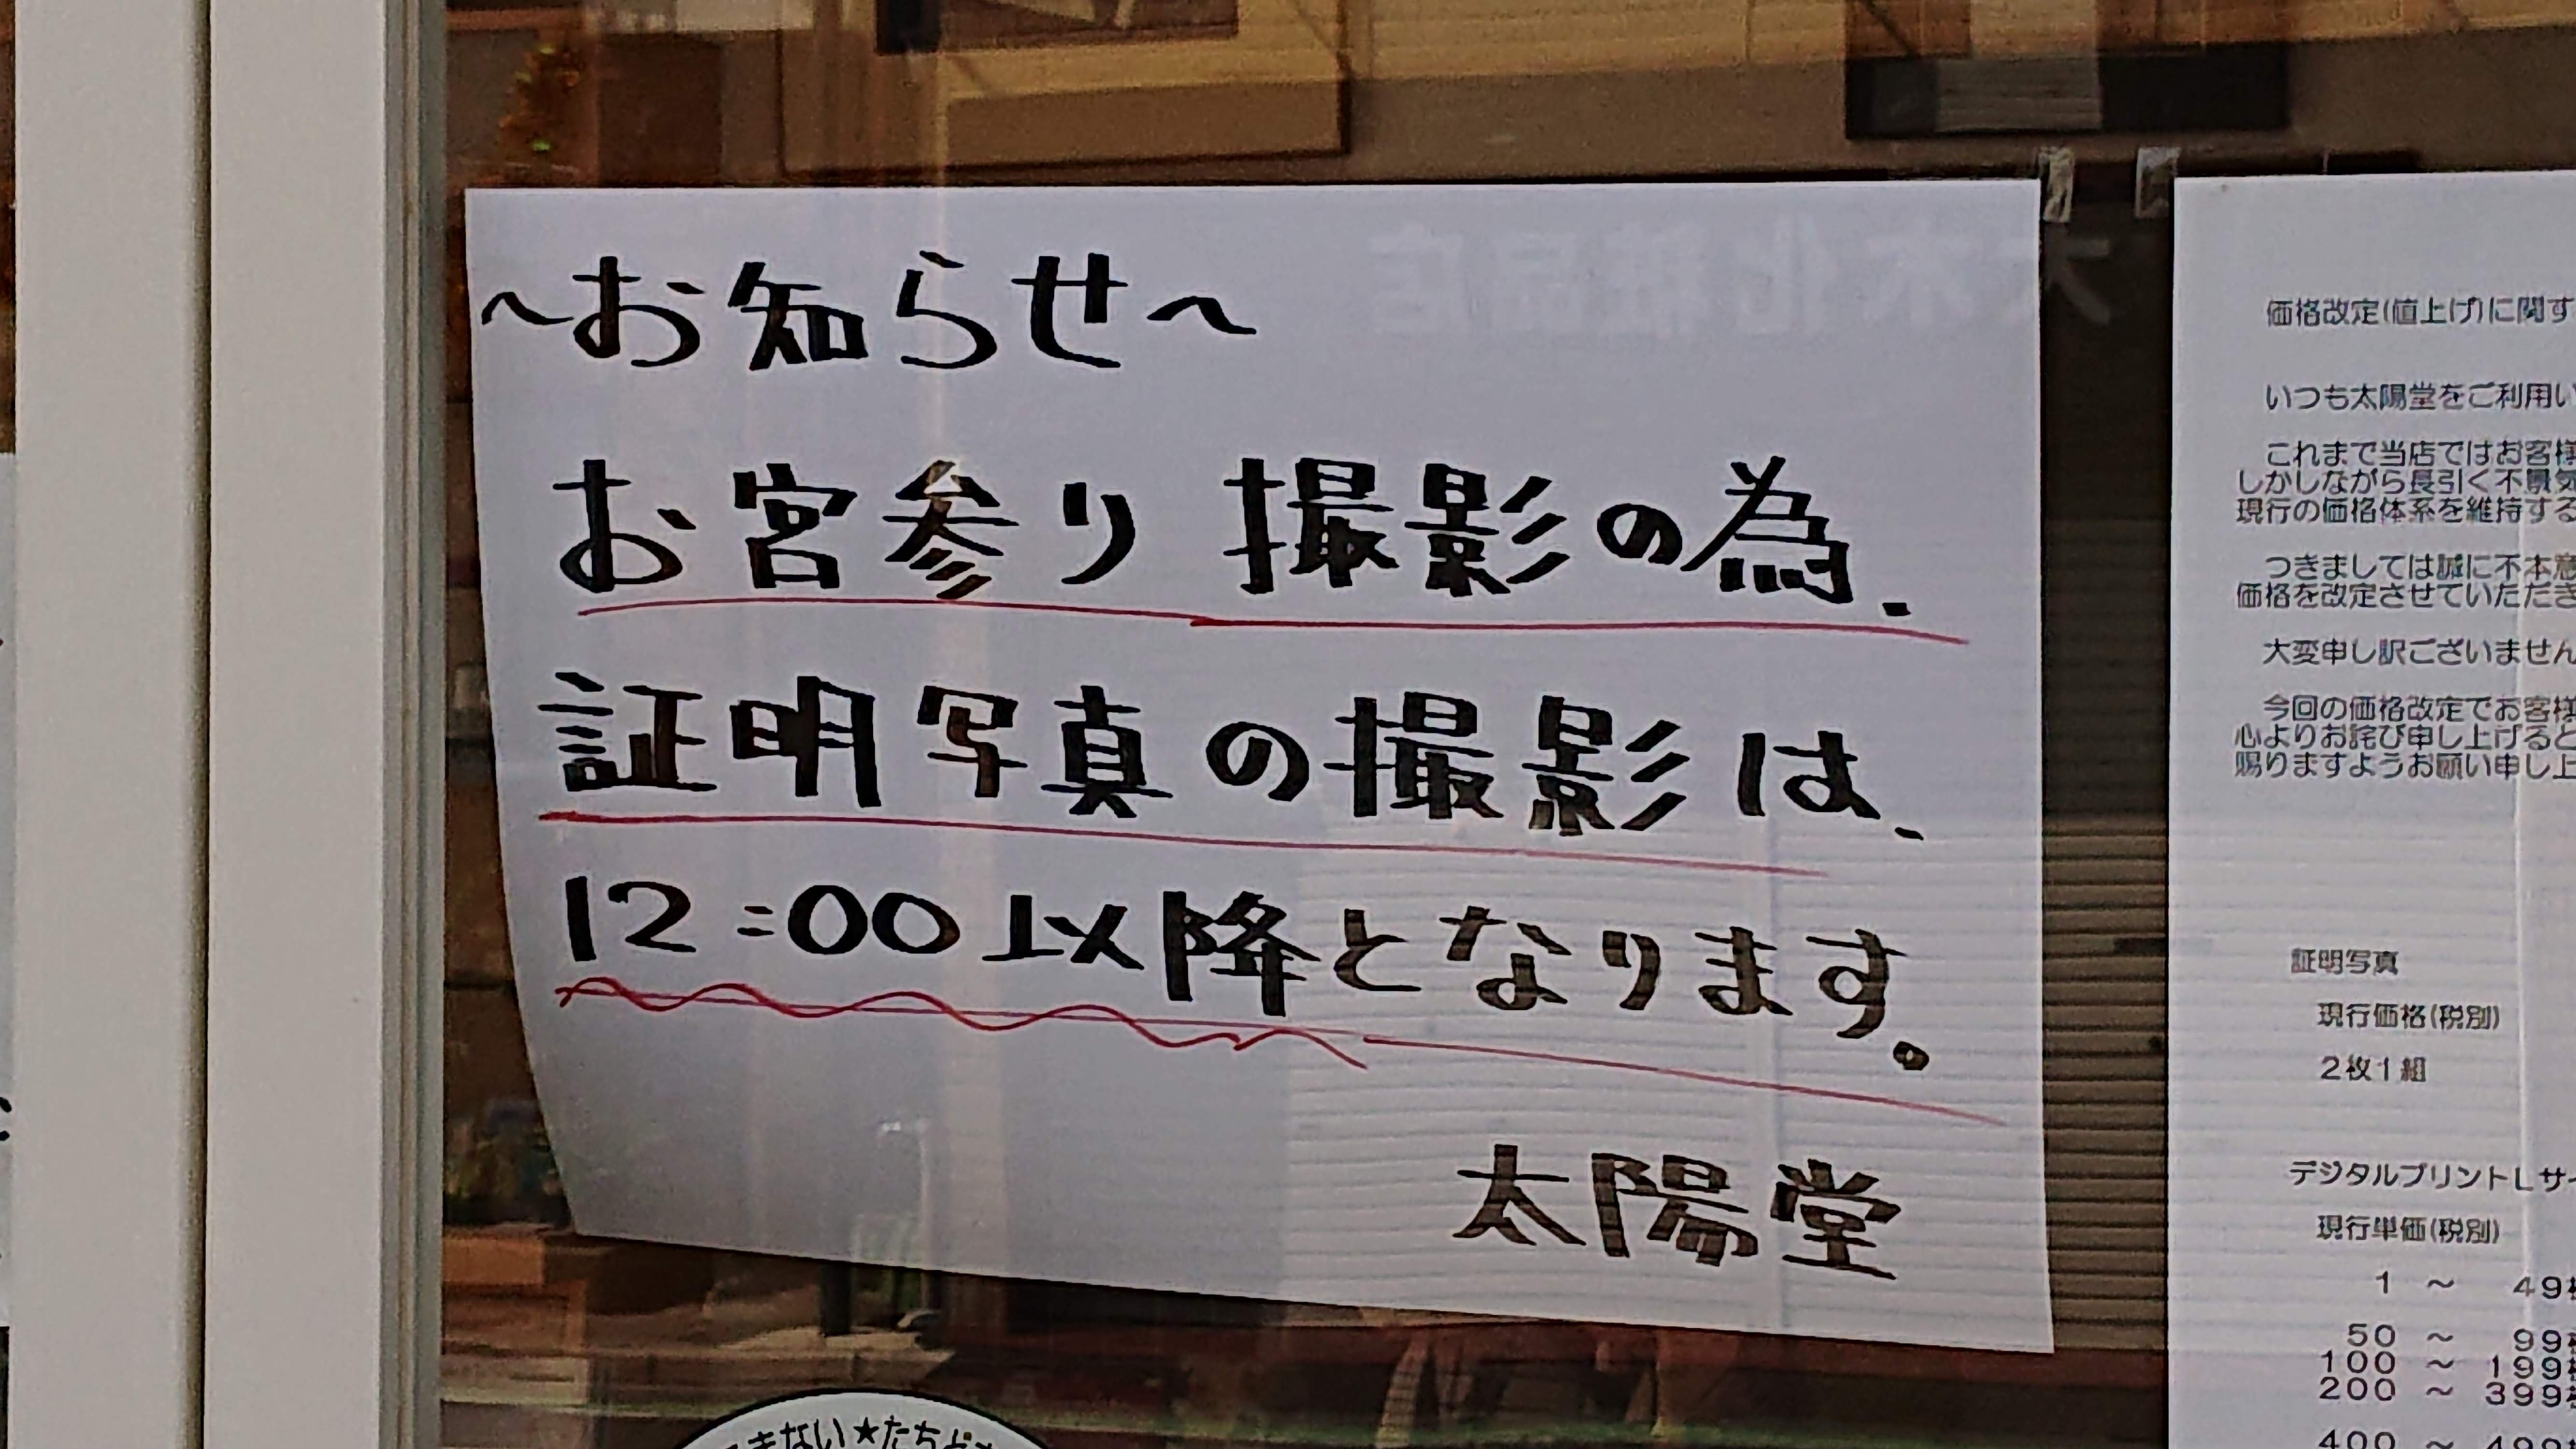 〜お知らせ〜
お宮参り 撮影の為、
証明写真の撮影は、
12:00以降となります。
太陽堂
価格改定(値上げ)に関す
いつも太陽堂をご利用い
これまで当店ではお客様
しかしながら長引く不景気
現行の価格体系を維持する
つきましては誠に不本意
価格を改定させていただき
大変申し訳ございません
今回の価格改定でお客様
心よりお詫び申し上げると
賜りますようお願い申し上
証明写真
現行価格(税別)
2枚1組
デジタルプリントLサイ
現行単価(税別)
1 〜 49枚
50 〜 99枚
100 〜 199枚
200 〜 399枚
400 〜 499
きない★たちよ